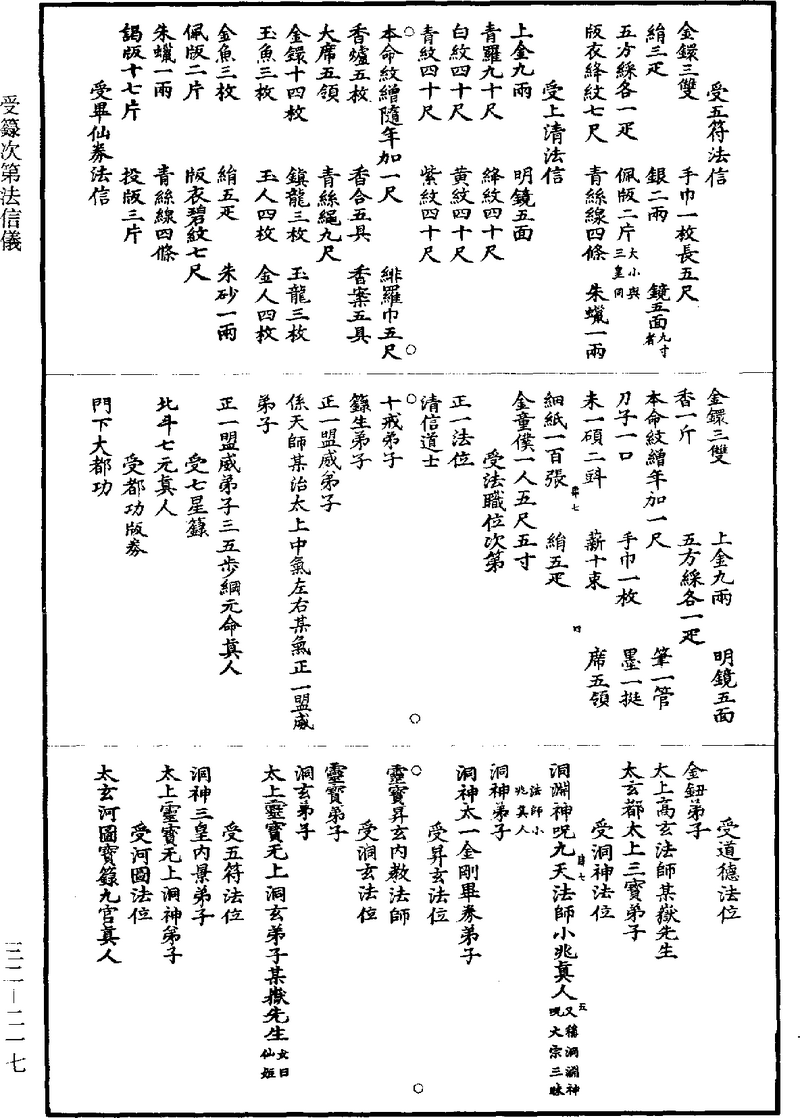 受籙次第法信儀
受五符法信
金鐶三雙　手巾一枚長五尺
絹三疋　銀二兩　鏡五面九寸者
五方綵各一疋　佩版二片大小與三皇同
版衣絳紋七尺　青絲線四條　朱蠟一兩
受上清法信
上金九兩　明鏡五面
青羅九十尺　絳紋四十尺
白紋四十尺　黄紋四十尺
青紋四十尺　紫紋四十尺
本命紋繒隨年加一尺　緋羅巾五尺
香爐五枚　香合五具　香案五具
大席五領　青絲繩九尺
金鐶十四枚　鎮龍三枚　玉龍三枚
玉魚三枚　玉人四枚　金人四枚
金魚三枚　絹五疋　朱砂一兩
佩版二片　版衣碧紋七尺
朱蠟一兩　青絲線四條
謁版十七片　投版三片
受畢仙券法信
金鐶三雙　上金九兩　明鏡五面
香一斤　五方綵各一疋
本命紋繒年加一尺　筆一管
刀子一口　手巾一枚　墨一挺
米一碩二㪷　薪十束　席五領
細紙一百張　絹五疋
金童僕一人五尺五寸
受法職位次第
正一法位
清信道士
十戒弟子
籙生弟子
正一盟威弟子
係天師某治太上中氣左右某氣正一盟威
弟子
正一盟威弟子三五步綱元命眞人
受七星籙
北斗七元眞人
受都功版券
門下大都功
受道德法位
金鈕弟子
太上高玄法師某嶽先生
太玄都太上三寶弟子
受洞神法位
洞淵神呪九天法師小兆眞人又稱洞淵神呪大宗三昧
法師小兆眞人
洞神弟子
洞神太一金剛畢券弟子
受昇玄法位
靈寶昇玄内教法師
受洞玄法位
靈寶弟子
洞玄弟子
太上靈寶无上洞玄弟子某嶽先生女曰仙姫
受五符法位
洞神三皇内景弟子
太上靈寶无上洞神弟子
受河圖法位
太玄河圖寶籙九宮眞人
三二—二一七